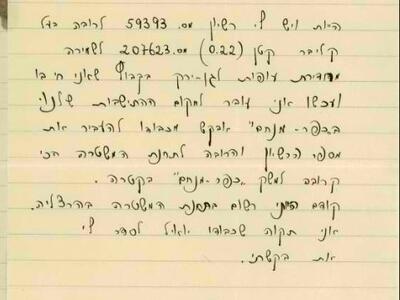 היות ויש לי רשיון מס. 59393 לרובה בעל
קליבר קטן (0.22) מס. 207623 לשמירה
עופות לגן-ירק בקבוץ שאני חי בו
ועכשו אני עובר למקום ההתישבות שלנו,
ב"כפר-מנחם" אבקש מכבודו להעביר את
מספר הרשיון והרובה לתחנת המשטרה הכי
קרובה למשק "כפר-מנחם" בקטרה.
קודם הייתי רשום בתחנת המשטרה בהרצליה.
אני תקוה שכבודו יואיל לסדר לי
את בקשתי.